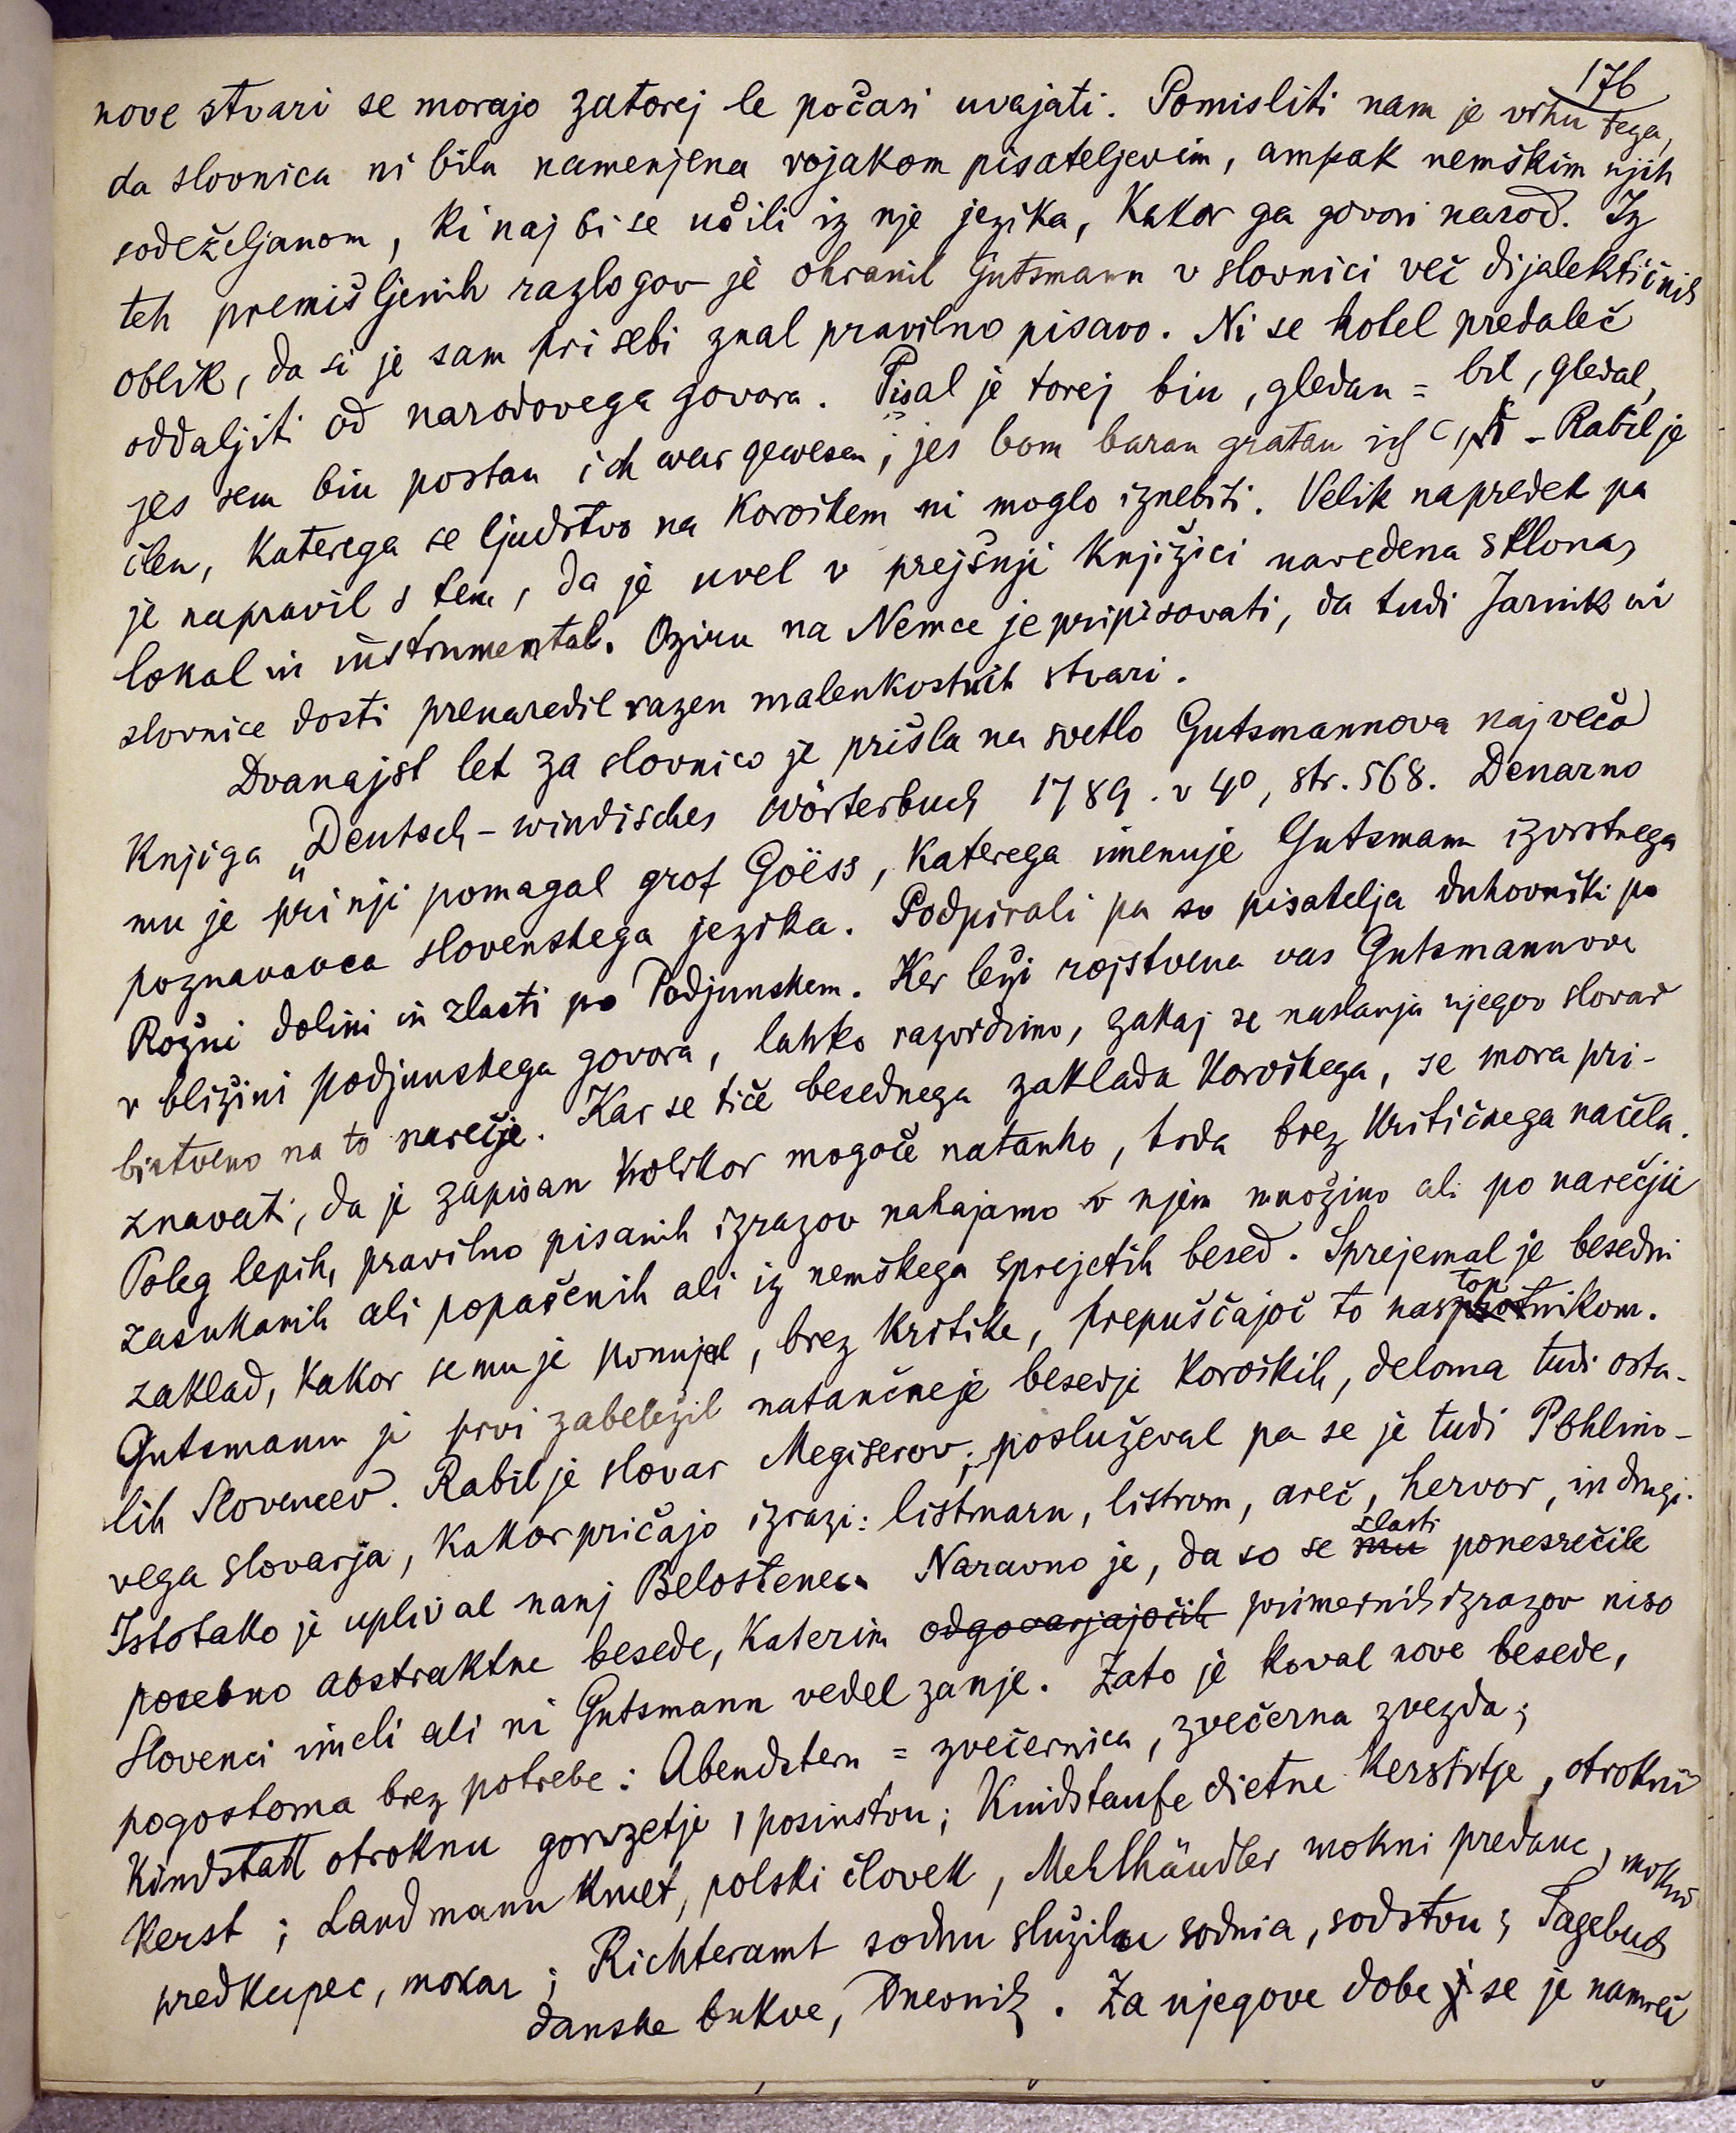 176
nove stvari se morajo zatorej le počasi uvajati. Pomisliti nam je vrhu tega,
da slovnica ni bila namenjena rojakom pisateljevim, ampak nemškim njih
sodeželjanom, ki naj bi se učili iz nje jezika, kakor ga govori narod. Iz
teh premišljenih razlogov je ohranil Gutsmann v slovnici več dijalektičnih
oblik, da si je sam pri sebi znal pravilno pisavo. Ni se hotel predaleč
oddaljiti od narodovega govora. Pisal je torej biu, gledau = bil, gledal,
jes sem biu postau ich war gewesen; jes bom barau gratau ich - Rabil je
člen, katerega se ljudstvo na Koroškem ni moglo iznebiti. Velik napredek pa
je napravil s tem, da je uvel v prejšnji knjižici navedena sklona,
lokal in instrumental. Oziru na Nemce je pripisovati, da tudi Jarnik ni
slovnice dosti prenaredil razen malenkostnih stvari.
Dvanajst let za slovnico je prišla na svetlo Gutsmannova največa
knjiga „Deutsch-windisches Wörterbuch 1789. v 4º, str. 568. Denarno
mu je pri nji pomagal grof Goëss, katerega imenuje Gutsmann izvrstnega
poznavavca slovenskega jezika. Podpirali pa so pisatelja duhovniki po
Rožni dolini in zlasti po Podjunskem. Ker leži rojstvena vas Gutsmannova
v bližini podjunskega govora, lahko razvidimo, zakaj se naslanja njegov slovar
bistveno na to narečje. Kar se tiče besednega zaklada koroškega, se mora pri-
znavati, da je zapisan kolikor mogoče natanko, toda brez kritičnega načela.
Poleg lepih, pravilno pisanih izrazov nahajamo v njem množino ali po narečju
zasukanih ali popačenih ali iz nemškega sprejetih besed. Sprejemal je besedni
zaklad, kakor se mu je ponujal, brez kritike, prepuščajoč to nastopnikom.
Gutsmann je prvi zabeležil natančneje besedje koroških, deloma tudi osta-
lih Slovencev. Rabil je slovar Megiserov; posluževal pa se je tudi Pohlino-
vega slovarja, kakor pričajo izrazi: listmarn, listrom, areč, hervor, in drugi.
Istotako je uplival nanj Belostenec. Naravno je, da so se mu zlasti ponesrečile
posebno abstraktne besede, katerim odgovarjajočih primernih izrazov niso
Slovenci imeli ali ni Gutsmann vedel zanje. Zato je koval nove besede,
pogostoma brez potrebe: Abendstern = zvečernica, zvečerna zvezda;
Kindstatt otroknu gorvzetje, posinstvu; Kindstaufe dietne kerstitje, otrokni
kerst; Landmann kmet, polski človek, Mehlhändler mokni predauc, mokni
predkupec, mokar; Richteramt sodnu službu sodnia, sodstvu; Tagebuch
danske bukve, Dnevnik. Za njegove dobe se je namreč